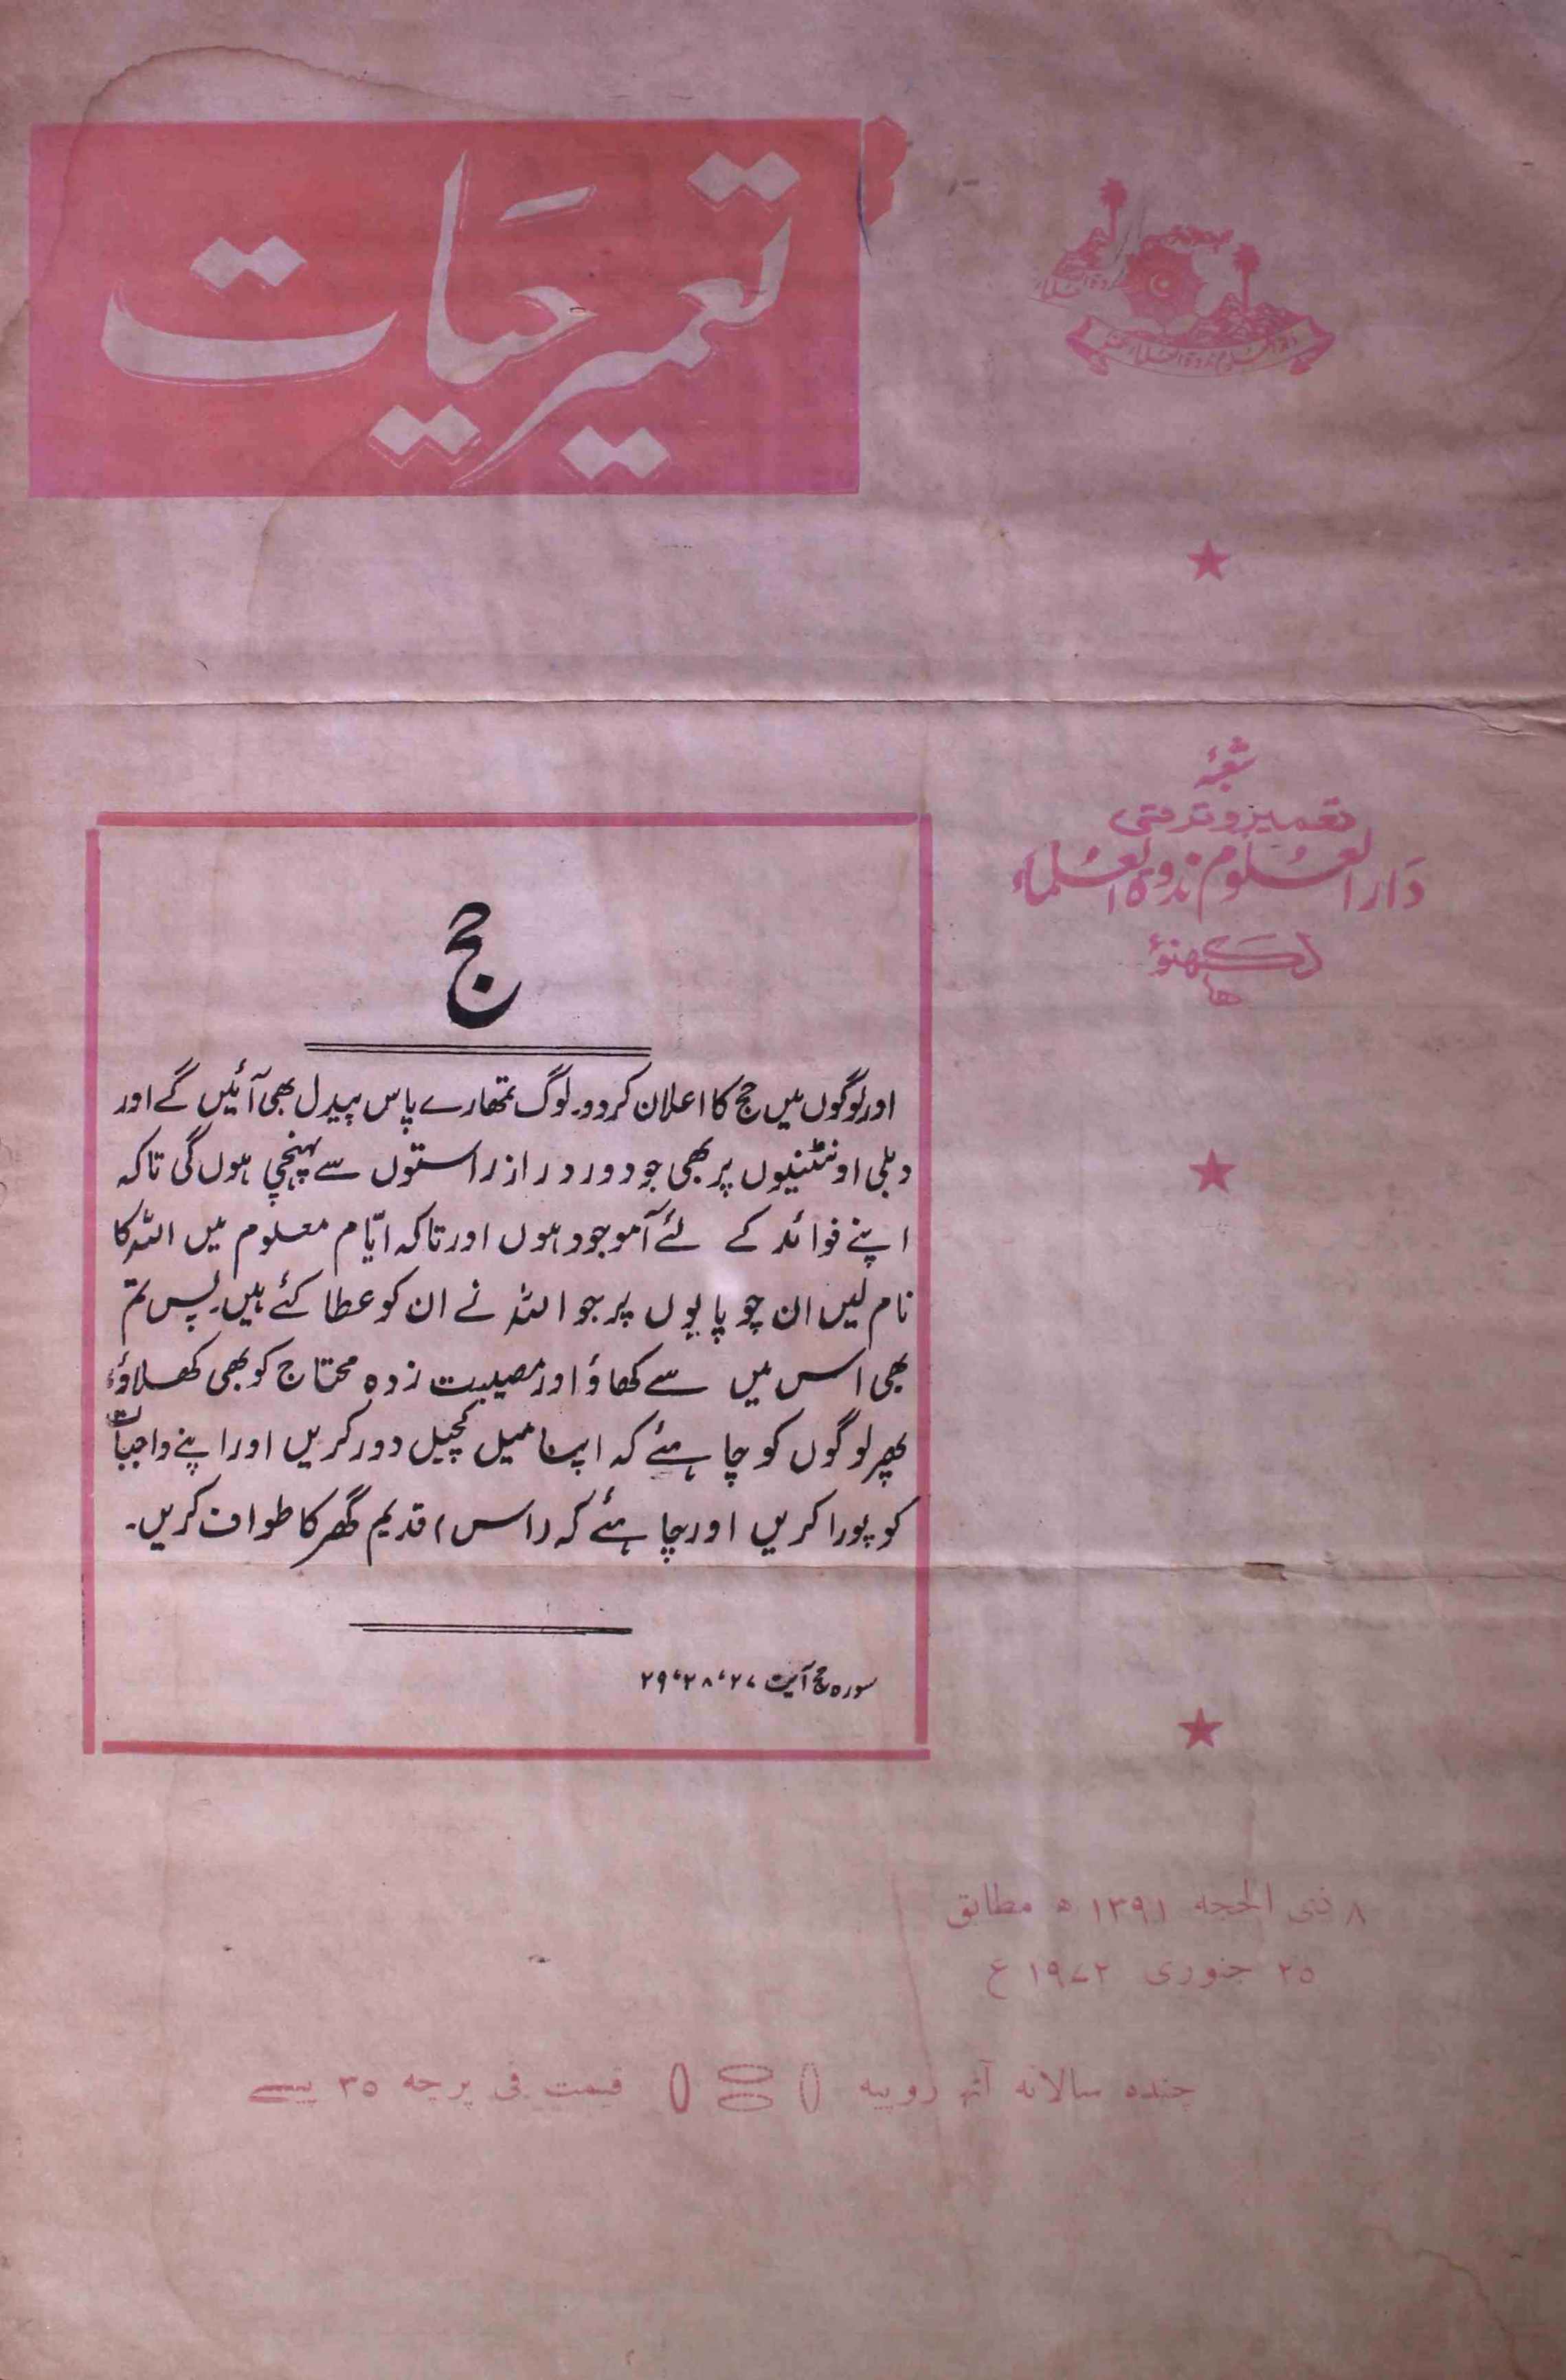 تعمیر حیات
شعبۂ
تعمیر و ترقی
دَار العُلوم ندوۃ العُلماء
لکھنؤ
حج
اور لوگوں میں حج کا اعلان کر دو۔ لوگ تمھارے پاس پیدل بھی آئیں گے اور
دبلی اونٹنیوں پر بھی جو دور دراز راستوں سے پہنچی ہوں گی تاکہ
اپنے فوائد کے لئے آموجود ہوں اور تاکہ ایّام معلوم میں اللہ کا
نام لیں ان چوپایوں پر جو اللہ نے ان کو عطا کئے ہیں۔ پس تم
بھی اس میں سے کھاؤ اور مصیبت زدہ محتاج کو بھی کھلاؤ،
پھر لوگوں کو چاہئے کہ اپنا میل کچیل دور کریں اور اپنے واجبات
کو پورا کریں اور چاہئے کہ (اس) قدیم گھر کا طواف کریں۔
سورہ حج آیت ۲۷، ۲۸، ۲۹
۸ ذی الحجہ ۱۳۹۱ ھ مطابق
۲۵ جنوری ۱۹۷۲ ع
چندہ سالانہ آٹھ روپیہ قیمت فی پرچہ ۳۵ پیسے